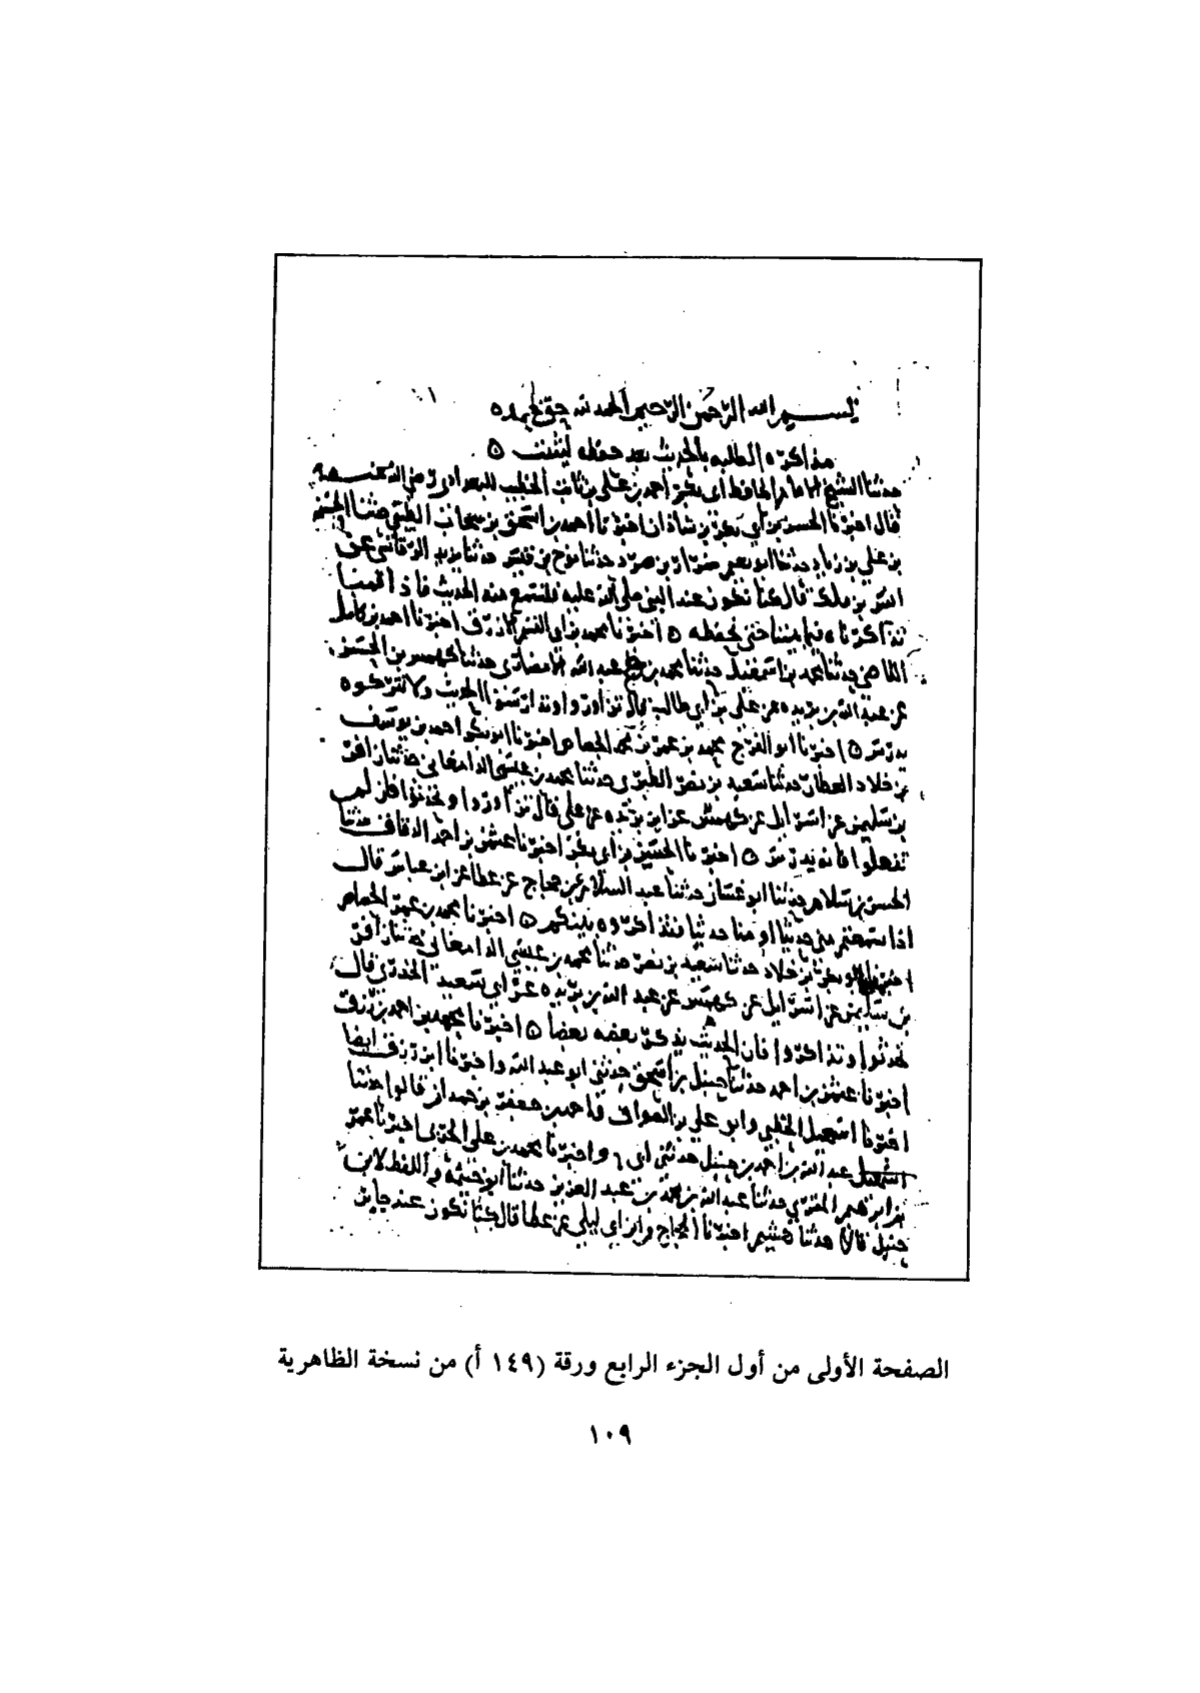 بسم الله الرحمن الرحيم الحمد لله حق حمده
مذاكرة الطلبة بالحديث بعد حفظه ليثبت ه
حدثنا الشيخ الامام الحافظ ابو بكر احمد بن علي بن ثابت الخطيب البغدادي رضي الله عنه
قال اخبرنا الحسن بن ابي بكر بن شاذان اخبرنا احمد بن اسحق بن نيخاب الطيبي حدثنا الحسن
بن علي بن زياد حدثنا ابو نعيم ضرار بن صرد حدثنا نوح بن قيس حدثنا يزيد الرقاشي عن
انس بن ملك قال كنا نكون عند النبي صلى الله عليه فنسمع منه الحديث فاذا قمنا
تذاكرناه فيما بيننا حتى نحفظه ه اخبرنا محمد بن ابي القسم الازرق اخبرنا احمد بن كامل
القاضي حدثنا محمد بن اسمعيل حدثنا محمد بن عبد الله الانصاري حدثنا كهمس بن الحسن
عن عبد الله بن بريده عن علي بن ابي طالب قال تزاوروا وتدارسوا الحديث ولا تتركوه
يدرس ه اخبرنا ابو الفرج محمد بن عمر بن محمد الجصاص اخبرنا ابو بكر احمد بن يوسف
بن خلاد العطار حدثنا سعيد بن نصر الطبري حدثنا محمد بن عيسى الدامغاني حدثنا زافر
بن سليمن عن اسرايل عن كهمس عن ابن بريده عن علي قال تزاوروا وتحدثوا فان لم
تفعلوا فانه يدرس ه اخبرنا الحسن بن ابي بكر اخبرنا عثمن بن احمد الدقاق حدثنا
الحسن بن سلام حدثنا ابو غسان حدثنا عبد السلام عن حجاج عن عطا عن ابن عباس قال
اذا سمعتم مني حديثا فتذاكروه بينكم ه اخبرنا محمد بن عمر الجصاص
اخبرنا ابو بكر بن خلاد حدثنا سعيد بن نصر حدثنا محمد بن عيسى الدامغاني حدثنا زافر
بن سليمن عن اسرايل عن كهمس عن عبد الله بن بريده عن ابي سعيد الخدري قال
تحدثوا وتذاكروا فان الحديث يذكر بعضه بعضا ه اخبرنا محمد بن احمد بن رزق
اخبرنا عثمن بن احمد حدثنا حنبل بن اسحق حدثني ابو عبد الله واخبرنا ابن رزق ايضا
اخبرنا اسمعيل الخطبي وابو علي بن الصواف واحمد بن جعفر بن حمدان قالوا حدثنا
عبد الله بن احمد بن حنبل حدثني ابي واخبرنا محمد بن علي الحربي اخبرنا عمر
بن ابراهيم المقري حدثنا عبد الله بن محمد بن عبد العزيز حدثنا ابو خيثمة واللفظ لابن
حنبل قالا حدثنا هشيم اخبرنا الحجاج وابن ابي ليلى عن عطا قال كنا نكون عند جابر
الصفحة الأولى من أول الجزء الرابع ورقة (١٤٩ أ) من نسخة الظاهرية
١٠٩